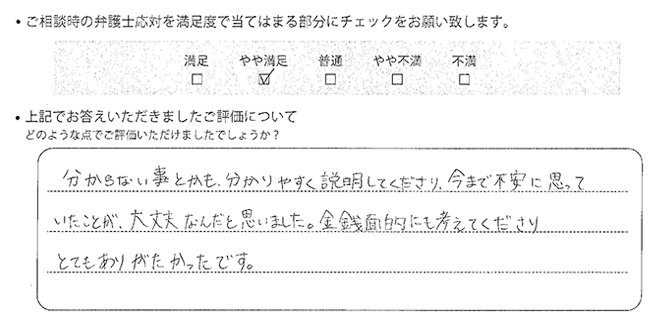 ・ご相談時の弁護士応対を満足度で当てはまる部分にチェックをお願い致します。
満足 やや満足 普通 やや不満 不満
□ ☑ □ □ □
・上記でお答えいただきましたご評価について
どのような点でご評価いただけましたでしょうか？
分からない事とかも、分かりやすく説明してくださり、今まで不安に思って
いたことが、大丈夫なんだと思いました。金銭面的にも考えてくださり
とてもありがたかったです。